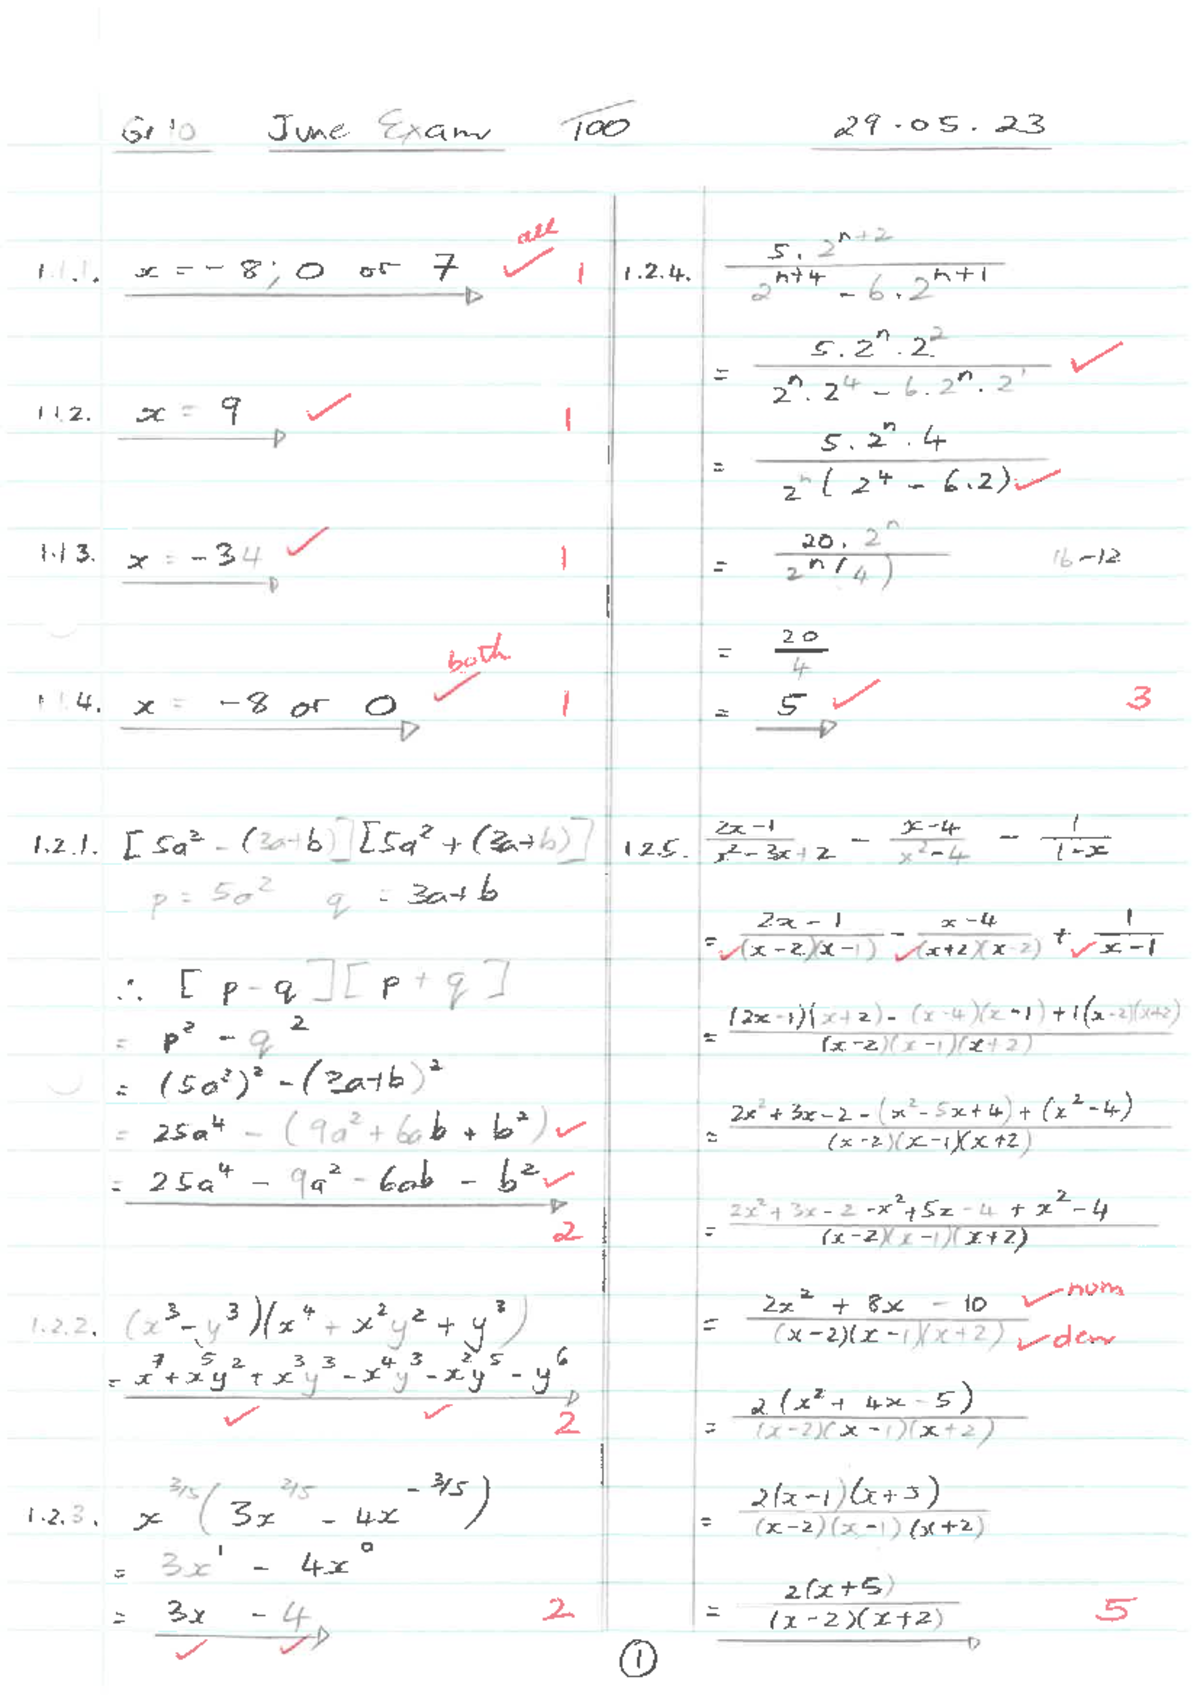 Gr 10 June Exam 100 29.05.23
all
1.1.1. x = -8; 0 or 7 ✓ 1
1.1.2. x = 9 ✓ 1
1.1.3. x = -34 ✓ 1
both
1.1.4. x = -8 or 0 ✓ 1
1.2.1. [5a² - (3a+b)][5a² + (3a+b)]
p = 5a² q = 3a+b
∴ [p - q][p + q]
= p² - q²
= (5a²)² - (3a+b)²
= 25a⁴ - (9a² + 6ab + b²) ✓
= 25a⁴ - 9a² - 6ab - b² ✓
2
1.2.2. (x³ - y³)(x⁴ + x²y² + y³)
= x⁷ + x⁵y² + x³y³ - x⁴y³ - x²y⁵ - y⁶
✓ ✓ 2
1.2.3. x^(3/5) (3x^(2/5) - 4x^(-3/5))
= 3x¹ - 4x⁰
= 3x - 4 2
✓ ✓
1.2.4. (5.2^(n+2))/(2^(n+4) - 6.2^(n+1))
= (5.2ⁿ.2²)/(2ⁿ.2⁴ - 6.2ⁿ.2¹) ✓
= (5.2ⁿ.4)/(2ⁿ(2⁴ - 6.2)) ✓
= (20.2ⁿ)/(2ⁿ(4)) 16-12
= 20/4
= 5 ✓ 3
1.2.5. (2x-1)/(x²-3x+2) - (x-4)/(x²-4) - 1/(1-x)
= (2x-1)/(✓(x-2)(x-1)) - (x-4)/(✓(x+2)(x-2)) + 1/(✓x-1)
= ((2x-1)(x+2) - (x-4)(x-1) + 1(x-2)(x+2))/((x-2)(x-1)(x+2))
= (2x²+3x-2-(x²-5x+4)+(x²-4))/((x-2)(x-1)(x+2))
= (2x²+3x-2-x²+5x-4+x²-4)/((x-2)(x-1)(x+2))
= (2x²+8x-10)/((x-2)(x-1)(x+2)) ✓num ✓den
= (2(x²+4x-5))/((x-2)(x-1)(x+2))
= (2(x-1)(x+5))/((x-2)(x-1)(x+2))
= (2(x+5))/((x-2)(x+2)) 5
1